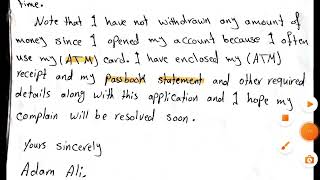 time.
Note that I have not withdrawn any amount of
money since I opened my account because I often
use my (ATM) card. I have enclosed my (ATM)
receipt and my passbook statement and other required
details along with this application and I hope my
complain will be resolved soon.
Yours sincerely
Adam Ali.